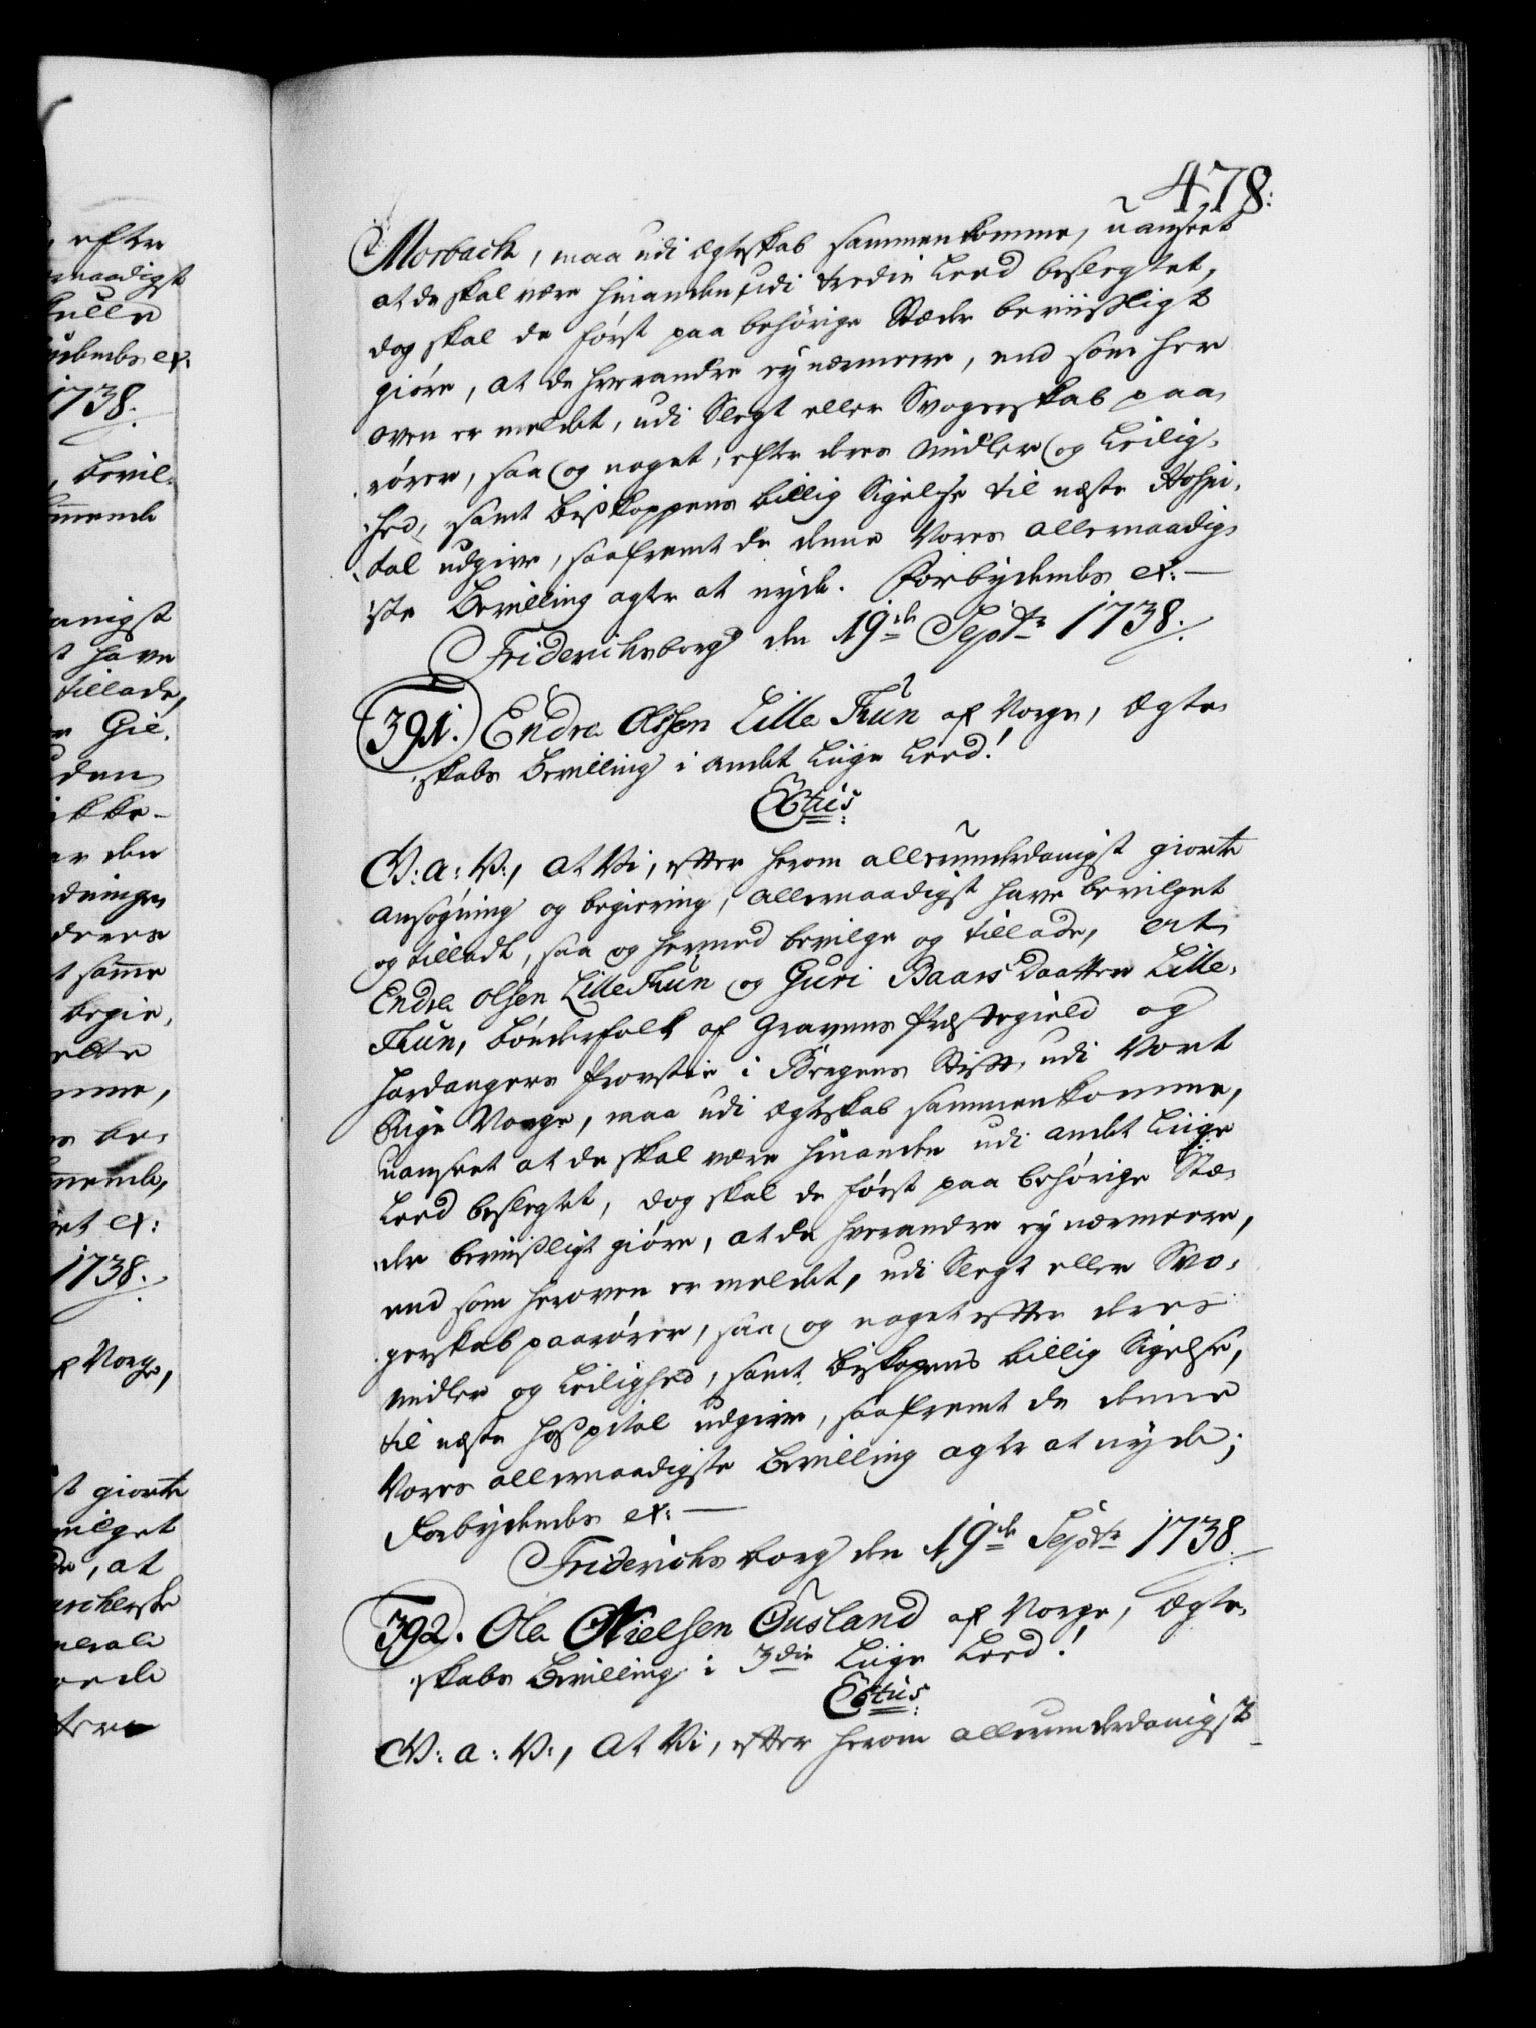 478.
Morbach, maa udi Ægteskab sammenkomme, uanseet
at de skal være hinanden udi tredie Leed beslegtet,
dog skal de først paa behörige Stæder beviisligt
giöre, at de hverandre ey nærmere, end som her
oven er meldet, udi Slegt eller Svogerskab paa,
rörer, saa og noget, efter deres Midler og Leilig,
hed, samt Biskoppens billig Sigelse til næste Hospi,
tal udgive, saafremt de denne Vores allernaadig,
ste Bevilling agter at nyde. Forbydendes etc:
Friderichsborg den 19de Septr 1738.
391. Endre Olssen Lille Thun af Norge, Ægte,
skabs Bevilling i andet Liige Leed!
C6tus
V: a: V:, At Vi, efter herom allerunderdanigst giorte
ansøgning og begiering, allernaadigst have bevilget
og tilladt, saa og hermed bevilge og tillade, at
Endre Olsen Lille Thun og Guri Baars Daatter Lille,
Thun, bönderfolk af Gravens Præstegield og
Hardangers Provstie i Bergens Stift, udi Vort
Rige Norge, maa udi Ægteskab sammenkomme,
uanseet at de skal være hinanden udi andet Liige
Leed beslegtet, dog skal de först paa behörige Stæ,
der beviisligt giöre, at de hverandre ey nærmere,
end som heroven er meldet, udi Slegt eller Svo,
gerskab paarörer, saa og noget efter deres
Midler og Leilighed, samt Biskopens billig Sigelse,
til næste Hospital udgive, saafremt de denne
Vores allernaadigste Bevilling agter at nyde;
Forbydendes etc:
Friderichsborg den 19de Septr 1738.
392. Ole Nielsen Ousland af Norge, Ægte,
skabs Bevilling i 3die Liige Leed!
C6tus
V: a: V:, At Vi, efter herom allerunderdanigst